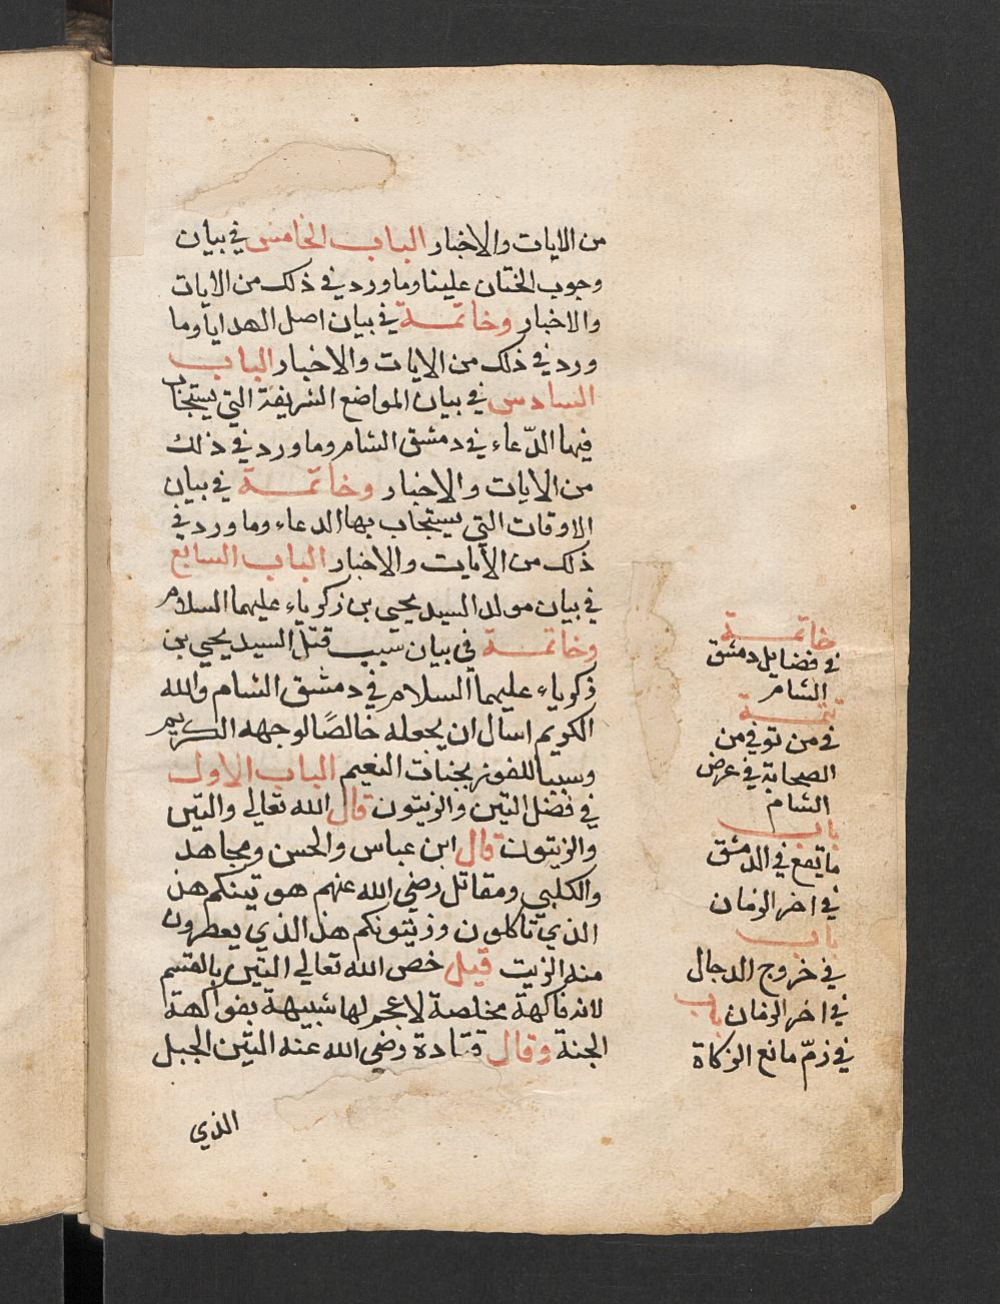 من الايات والاخبار الباب الخامس في بيان
وجوب الختان علينا وما ورد في ذلك من الايات
والاخبار وخاتمة في بيان اصل الهدايا وما
ورد في ذلك من الايات والاخبار الباب
السادس في بيان المواضع الشريفة التي يستجاب
فيها الدّعاء في دمشق الشام وما ورد في ذلك
من الايات والاخبار وخاتمة في بيان
الاوقات التي يستجاب بها الدعاء وما ورد في
ذلك من الأيات والاخبار الباب السابع
في بيان مولد السيد يحيى بن زكرياء عليهما السلام
وخاتمة في بيان سبب قتل السيد يحيى بن
زكرياء عليهما السلام في دمشق الشام والله
الكريم اسال ان يجعله خالصًا لوجهه الكريم
وسببا للفوز بجنات النعيم الباب الاول
في فضل التين والزيتون قال الله تعالى والتين
والزيتون قال ابن عباس والحسن ومجاهد
والكلبي ومقاتل رضي الله عنهم هو تينكم هذا
الذي تأكلون وزيتونكم هذا الذي يعصرون
منه الزيت قيل خص الله تعالى التين بالقسم
لانه فاكهة مخلصة لا عجم لها شبيهة بفواكهة
الجنة وقال قتادة رضي الله عنه التين الجبل
الذي
خاتمة
في فضايل دمشق
الشام
تتمة
في من توفي من
الصحابة في عرض
الشام
باب
ما يقع في الدمشق
في اخر الزمان
باب
في خروج الدجال
في اخر الزمان باب
في ذمّ مانع الزكاة